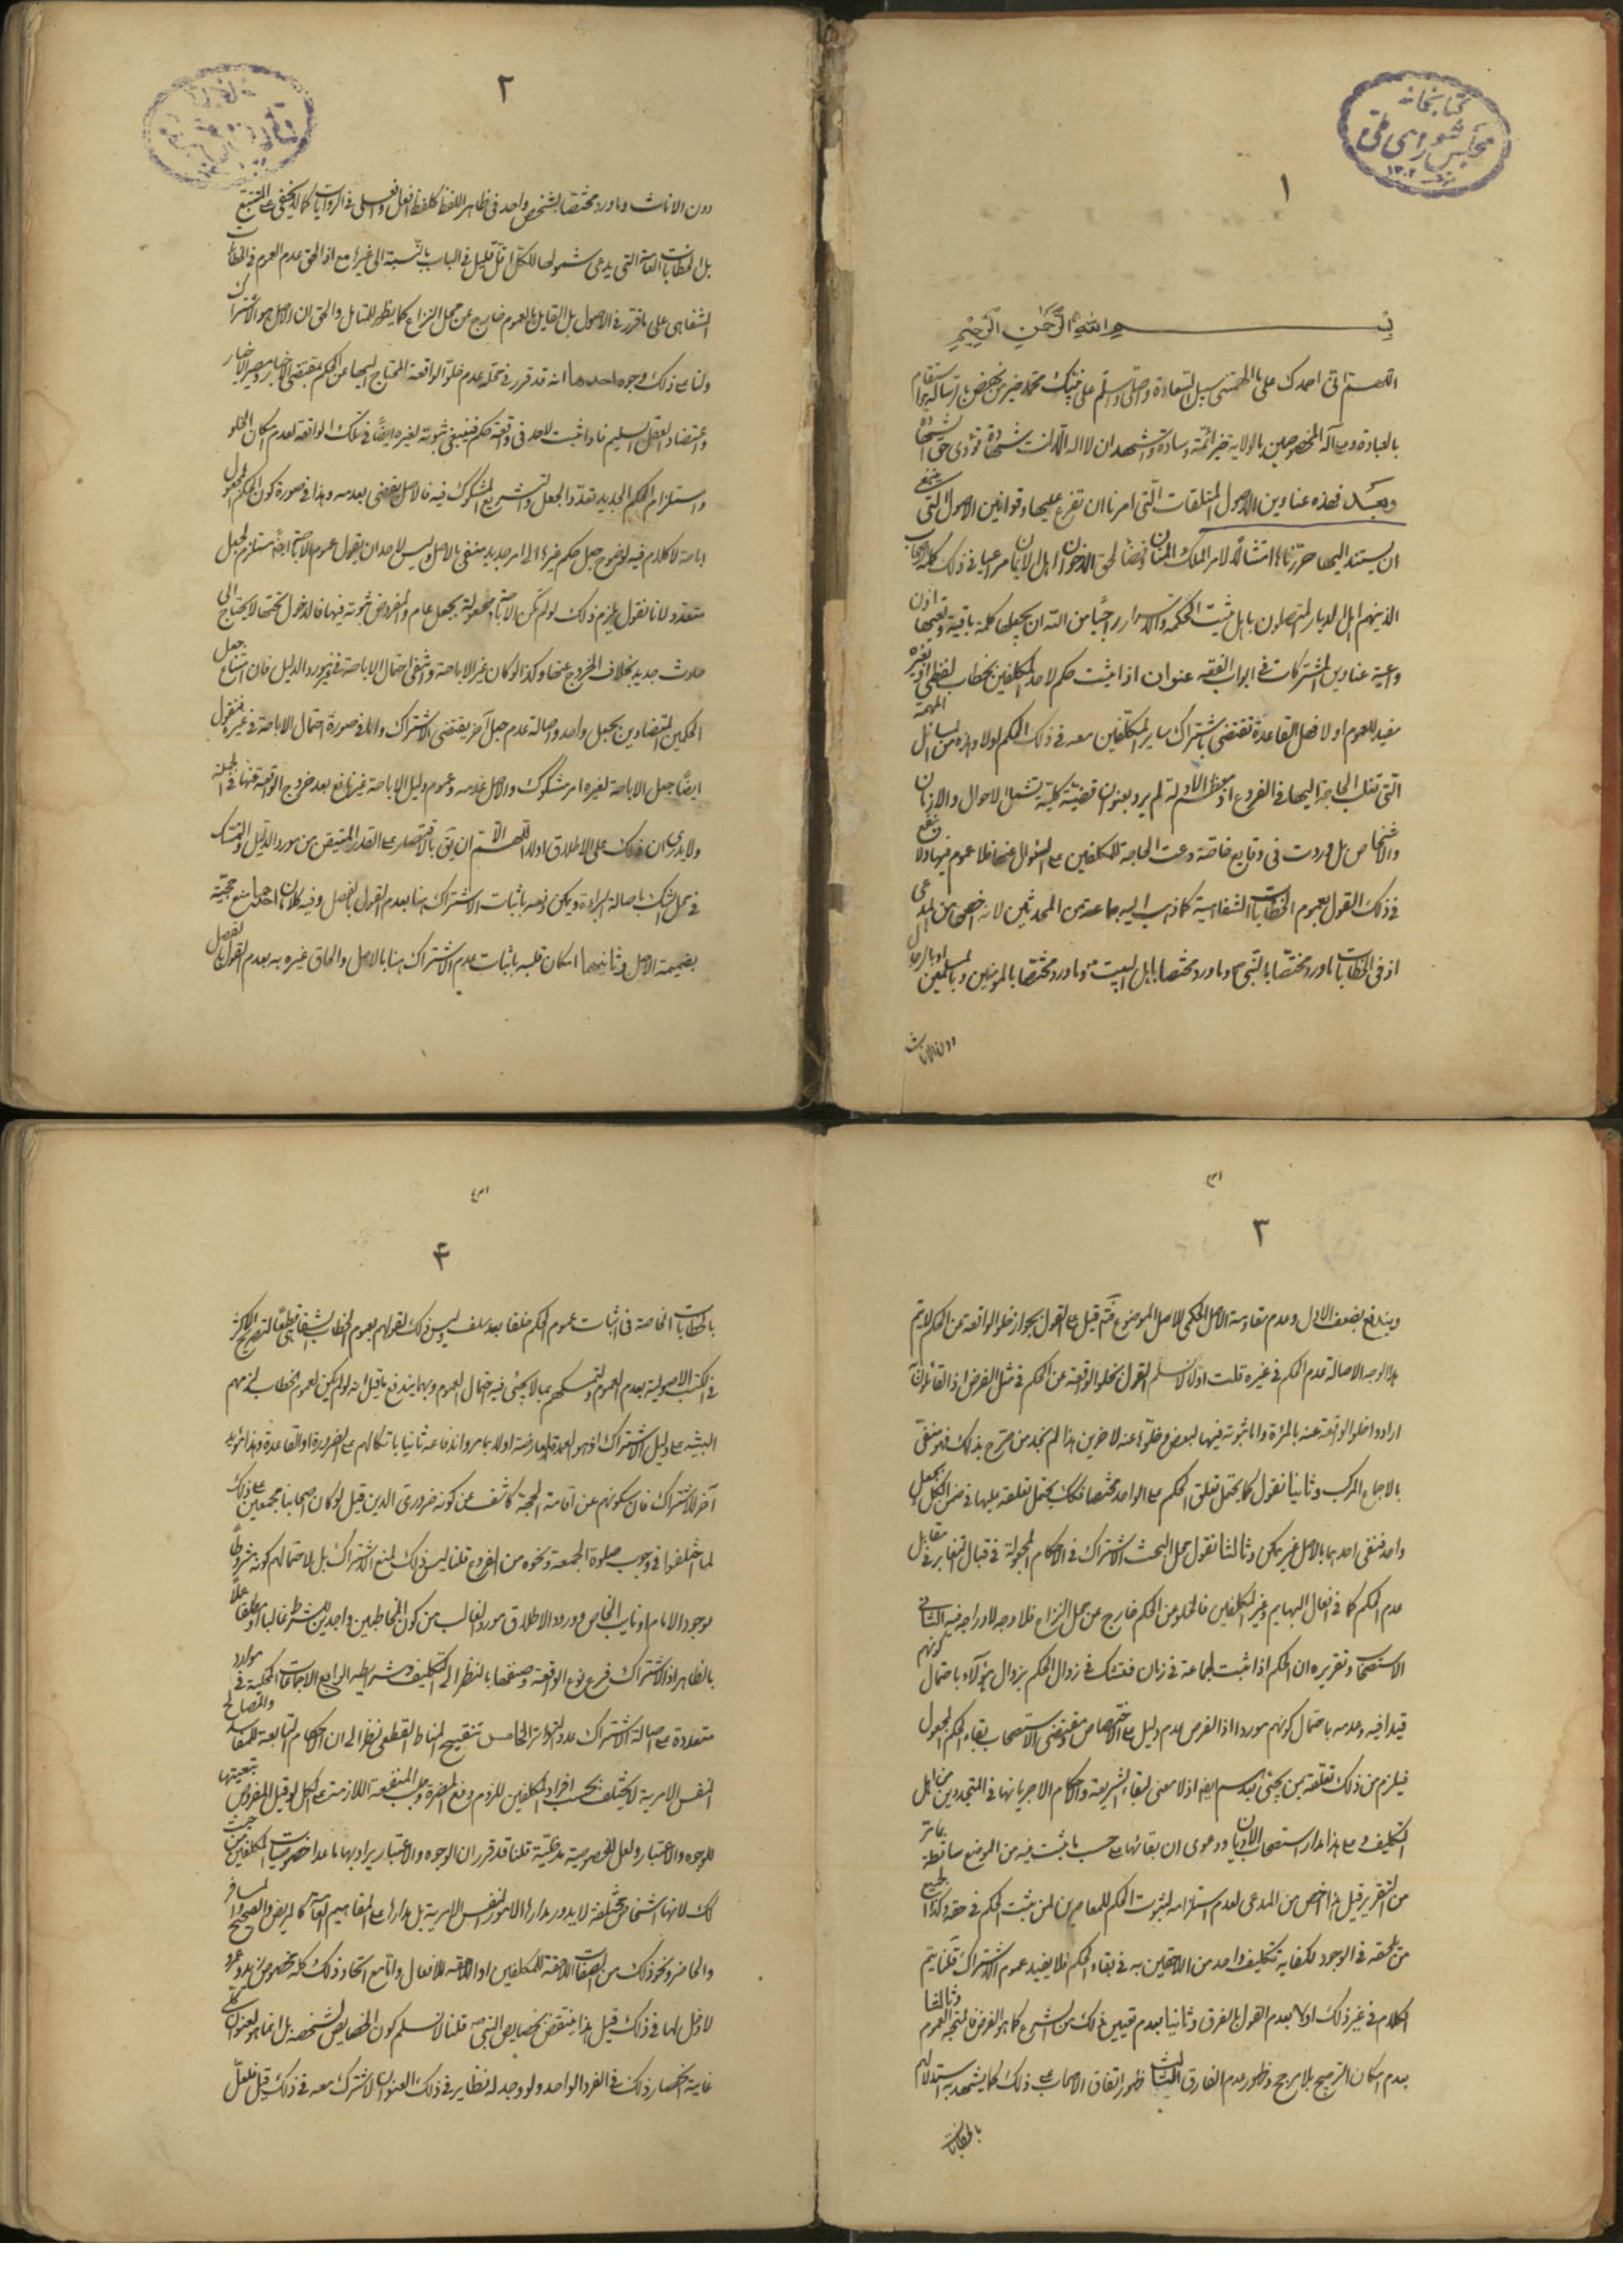 كتابخانه
مجلس شورای ملی
١
بسم الله الرحمن الرحيم
اللهم انى احمدك على ما الهمتنى سبيل السعادة واصلى واسلم على نبيك محمد خير من نهض بالرسالة
بالعبادة وعلى آله المخصوصين بالولاية خير ائمة وسادة واشهد ان لا اله الا انت شهادة تؤدى حق الشهادة
وبعد فهذه عناوين الاصول المتلقات التى امرنا ان نفرع عليها وقوانين الاصول التى ينبغى
ان يستند اليها حررتها امتثالا لامر الملك المنان وقضاء لحق الاخوان اهل الايمان مراعيا فى ذلك
وعمية عناوين المشتركات فى ابواب الفقه عنوان اذا ثبت حكم لاحد المكلفين بخطاب لفظى او بغيره
مفيد للعموم او لا فهل القاعدة تقتضى اشتراك ساير المكلفين معه فى ذلك الحكم اولا وهذه من المسائل المهمة
التى تغلب الحاجة اليها فى الفروع اذ معظم الادلة لم يرد بعنوان قضية كلية يشمل الاحوال والازمان
والاشخاص بل وردت فى وقايع خاصة دعت الحاجة للمكلفين على السؤال عنها فلا عموم فيها ولا ينفع
فى ذلك القول بعموم الخطابات الشفاهية كما ذهب اليه جماعة من المحدثين لانه اخص من المدعى
اذ فى الخطابات ما ورد مختصا بالنبى وما ورد مختصا باهل البيت وما ورد مختصا بالمؤمنين وبالمسلمين او بالرجال
دون الاناث
٢
دون الاناث وما ورد مختصا بشخص واحد فى ظاهر اللفظ كلفظ افعل وافعلى فى الروايات كما لا يخفى على المتتبع
بل الخطابات العامة التى يدعى شمولها للكل اقل قليل فى الباب بالنسبة الى غيرها مع ان الحق عدم العموم فى الخطاب
الشفاهى على ما قرر فى الاصول بل القايل بالعموم خارج عن محل النزاع كما يظهر للمتامل والحق ان الاصل هو الاشتراك
ولنا على ذلك وجوه احدها انه قد قرر فى محله عدم خلو الواقعة المحتاج اليها عن الحكم بمقتضى الاخبار
واعتضاد العقل السليم فاذا ثبت لاحد فى واقعة حكم فينبغى ثبوته لغيره ايضا فى تلك الواقعة لعدم امكان الخلو
واستلزام الحكم الجديد تعدد الجعل والتشريع المشكوك فيه فالاصل يقضى بعدمه وهذا فى صورة كون الحكم المجعول
اباحة لا كلام فيه لوضوح جعل حكم غيرها الى امر جديد منفى بالاصل وليس لاحد ان يقول عموم الاباحة ايضا مستلزم لجعل
متعدد لانا نقول يلزم ذلك لو لم تكن الاباحة مجعولة بجعل عام والمفروض ثبوته فيها فالدخول تحتها لا يحتاج الى
حادث جديد بخلاف الخروج عنها وكذا لو كان غير الاباحة وانتفى احتمال الاباحة فى غير مورد الدليل فان امتناع جعل
الحكمين المتضادين بجعل واحد واصالة عدم جعل آخر يقتضى الاشتراك واما فى صورة احتمال الاباحة فى غيره فنقول
ايضا جعل الاباحة لغيره امر مشكوك والاصل عدمه وعموم دليل الاباحة غير نافع بعد خروج الواقعة عنها فى الجملة
ولا يدرى ان ذلك على الاطلاق اولا اللهم الا ان يق بالاقتصار على القدر المتيقن من مورد الدليل والتمسك
فى محل الشك باصالة البراءة ويمكن دفعه باثبات الاشتراك هنا بعدم القول بالفصل وفيه كلامان احدهما منع حجية
بضميمة الاصل وثانيهما امكان قلبه باثبات عدم الاشتراك هنا بالاصل والحاق غيره به بعدم القول بالفصل
٣
ويندفع بضعف الاول وعدم مقاومة الاصل الحكمى للاصل الموضوعى قيل على القول بجواز خلو الواقعة عن الحكم لا يتم
هذا الوجه لاصالة عدم الحكم فى غيره قلت اولا لا نسلم القول بخلو الواقعة عن الحكم فى مثل الفرض اذ القائلون
ارادوا خلو الواقعة عنه بالمرة واما ثبوته فيها لبعض وخلوه عنه لآخرين هذا لم نجد من صرح بذلك فهو منفى
بالاجماع المركب وثانيا نقول كما يحتمل تعلق الحكم على الواحد مختصا فكك يحتمل تعلقه عليها فى ضمن الكل بجعل
واحد فنفى احدهما بالاصل غير ممكن وثالثا نقول محل البحث الاشتراك فى الاحكام المجعولة فى قبال التغاير فى مقابل
عدم الحكم كما فى افعال البهايم وغير المكلفين فالخلو عن الحكم خارج عن محل النزاع فلا وجه لادراجه فيه الثانى
الاستصحاب وتقريره ان الحكم اذا ثبت لجماعة فى زمان فنشك فى زوال الحكم بزوال هؤلاء باحتمال كونهم
قيدا فيه وعدمه باحتمال كونهم موردا اذ الفرض عدم دليل على الاختصاص مقتضى الاستصحاب بقاء الحكم المجعول
فيلزم من ذلك تعلقه بمن يجئ بعدهم ايضا اذ لا معنى لبقاء الشريعة والاحكام الا جريانها فى المتجددين من اهل
التكليف وعلى هذا مدار استصحاب الاديان ودعوى ان بقائها على حسب ما ثبت فيه من الموضع ساقطة بما مر
من التقرير قيل هذا اخص من المدعى لعدم استلزامه لثبوت الحكم للمعاصرين لمن ثبت الحكم فى حقه وكذا لجميع
من لحقه فى الوجود لكفاية تكليف واحد من اللاحقين به فى بقاء الحكم فلا يفيد عموم الاشتراك قلنا يتم
الكلام فى غير ذلك اولا بعدم القول بالفرق وثانيا بعدم تعيين ذلك من الشرع كما هو الفرض فالمتجه العموم وثالثا
بعدم امكان الترجيح بلا مرجح وظهور عدم الفارق الثالث ظهور اتفاق الاصحاب على ذلك كما يشهد به استدلالهم
بالخطابات
٤
بالخطابات الخاصة فى اثبات عموم الحكم خلفا بعد سلف وليس ذلك لقولهم بعموم الخطاب الشفاهى قطعا لتصريح الاكثر
فى الكتب الاصولية بعدم العموم وتمسكهم بما لا يجئ فيه احتمال العموم وبهما يندفع ما قيل انه لو لم يكن لعموم الخطاب لزمهم
البتة على دليل الاشتراك اذ هو العمدة لمعارضته اولا بما مر واندفاعه ثانيا باتكالهم على الضرورة او القاعدة وهذا مؤيد
آخر للاشتراك فان سكوتهم عن اقامة الحجة كاشف عن كونه ضرورى الدين قيل لو كان اصحابنا مجمعين على ذلك
لما اختلفوا فى وجوب صلوة الجمعة ونحوه من الفروع قلنا ليس ذلك لمنع الاشتراك بل لاحتمالهم كونه مشروطا
بوجود الامام او نايبه الخاص وورود الاطلاق مورد الغالب من كون المخاطبين واجدين للشرط غالبا او مطلقا عملا
بالظاهر اذ الاشتراك فرع نوع الواقعة وصنفها بالنظر الى التكليف وشرايطه الرابع الاجماعات المحكية فى موارد
متعددة على اصالة الاشتراك عدد التواتر الخامس تنقيح المناط القطعى نظرا الى ان الاحكام التابعة للمفاسد والمصالح
النفس الامرية لا يختلف بحسب افراد المكلفين للزوم دفع المضرة وجلب المنفعة اللازمة على الكل لو قيل المفروض تبعيتها
للوجوه والاعتبار ولعل للخصوصية مدخلية قلنا قد قرر ان الوجوه والاعتبار يراد بها ما عدا خصوصيات المكلفين من حيث
كك لانها اشخاص مختلفة لا يدور مدارها الامور النفس الامرية بل مدارها على المفاهيم العامة كالمريض والصحيح والمسافر
والحاضر ونحو ذلك من الصفات اللاحقة للمكلفين او اللاحقة للافعال واما مع اتحاد ذلك كله فخصوص زيد وعمرو
لا دخل لها فى ذلك قيل هذا منتقض بخصايص النبى قلنا لا نسلم كون الخصايص لشخصه بل انما هو لعنوان كلى
غاية انحصار ذلك فى الفرد الواحد ولو وجد له نظاير فى ذلك العنوان لاشترك معه فى ذلك قيل فلعل